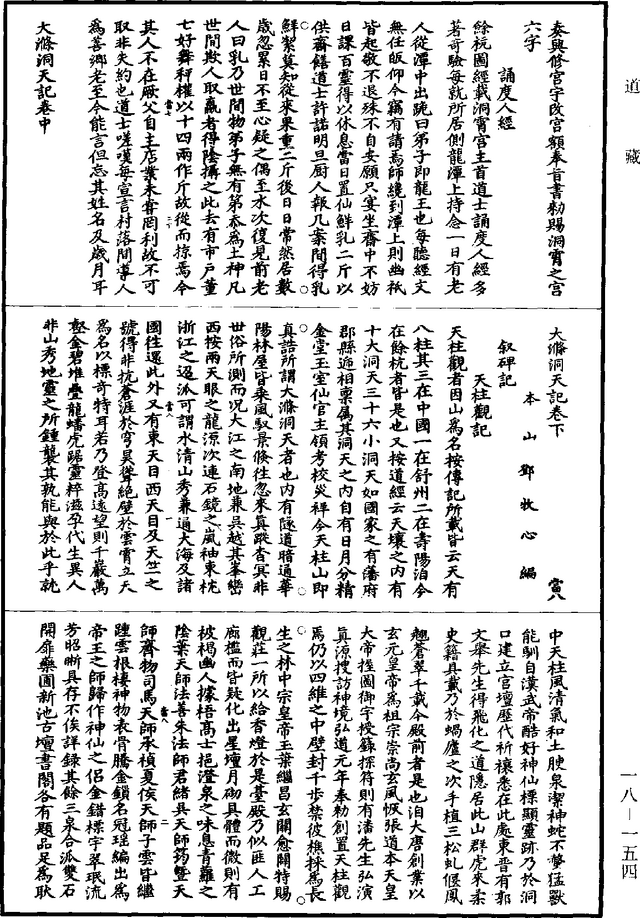 道藏
奏興修宮宇改宮額奉旨書勑賜洞霄之宮
六字
誦度人經
餘杭圖經載洞霄宮主首道士誦度人經多
著奇驗每就所居側龍潭上持念一日有老
人從潭中出跪曰弟子即龍王也每聽經文
無任皈仰今竊有請焉師纔到潭上則幽祇
皆起敬不遑殊不自安願只宴坐齋中不妨
日課百靈得以休息當日置仙鮮乳二斤以
供齋饍道士許諾明旦厨人報几案間得乳
鮮潔莫知從來果重二斤後日日常然居數
歲忽累日不至心疑之偶至水次復見前老
人曰乳乃世間物弟子無有第忝為土神凡
世間欺人取贏者得陰攝之此去有市戶董
七好舞秤權以十四兩作斤故從而掠焉今
其人不在厥父自主店業未嘗罔利故不可
取非失約也道士嗟嘆每宣言村落間導人
為善鄉老至今能言但忘其姓名及歲月耳
大滌洞天記卷中
大滌洞天記卷下 當八
本山鄧牧心編
叙碑記
天柱觀記
天柱觀者因山為名按傳記所載皆云天有
八柱其三在中國一在舒州二在壽陽洎今
在餘杭者皆是也又按道經云天壤之內有
十大洞天三十六小洞天如國家之有藩府
郡縣遞相稟屬其洞天之內自有日月分精
金堂玉室仙官主領考校災祥今天柱山即
真誥所謂大滌洞天者也內有隧道暗通華
陽林屋皆乘風馭景倐往忽來真蹤杳冥非
世俗所測而況大江之南地兼吳越其峯巒
西按兩天眼之龍源次連石鏡之嵐岫東枕
浙江之迢派可謂水清山秀兼通大海及諸
國往還此外又有東天目西天目及天竺之
號得非抗蒼涯於穹昊聳絕壁於雲霄立天
為名以標奇特耳若乃登高遠望則千巖萬
壑金碧堆疊龍蟠虎踞靈粹滋孕代生異人
非山秀地靈之所鍾襲其孰能與於此乎就
中天柱風清氣和土腴泉潔神蛇不螫猛獸
能馴自漢武帝酷好神仙標顯靈跡乃於洞
口建立宮壇歷代祈禳悉在此處東晉有郭
文舉先生得飛化之道隱居此山羣虎來柔
史籍具載乃於蝸廬之次手植三松虬偃鳳
翹蒼翠千載今殿前者是也洎大唐創業以
玄元皇帝為祖宗崇尚玄風恢張道本天皇
大帝握圖御宇授籙探符則有潘先生弘演
真源搜訪神境弘道元年奉勑創置天柱觀
焉仍以四維之中壁封千步禁彼樵採為長
生之林中宗皇帝玉葉繼昌玄關愈闢特賜
觀莊一所以給香燈於是臺殿乃似匪人工
廊檻而皆疑化出星壇月砌具體而微則有
被褐幽人據梧高士挹澄泉之味息青蘿之
陰葉天師法善朱法師君緒具天師筠暨天
師齊物司馬天師承禎夏侯天師子雲皆繼
踵雲根棲神物表骨騰金鎖名冠瑤編出為
帝王之師歸作神仙之侶金錯標宇翠珉流
芳昭晰具存不俟詳錄其餘三泉合派雙石
開扉藥圃新池古壇書閣各有題品足為耿
一八—一五四